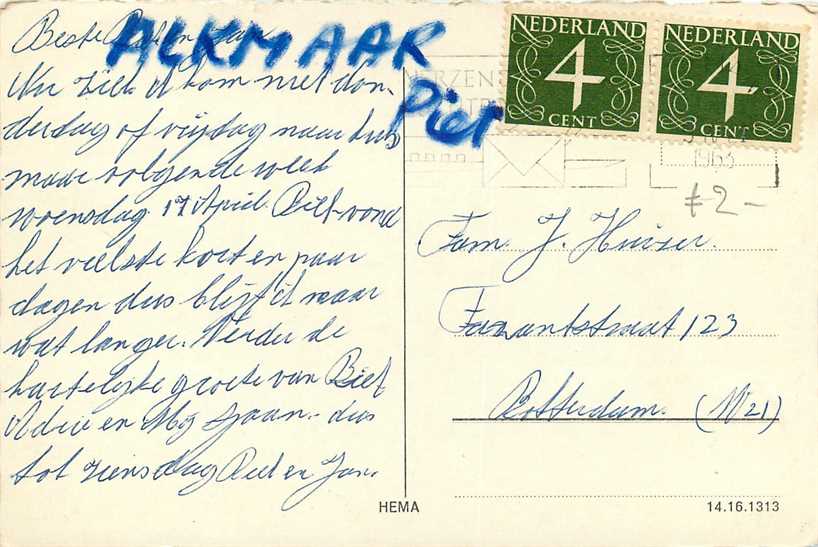 ALKMAAR
Piet
Beste en Jan
Nu ziek ik kom niet don-
derdag of vrijdag naar huis
maar volgende week
woensdag 17 April. Piet vond
het veelste kort en paar
dagen dus blijf it maar
wat langer. Verder de
hartelijke groete van Piet
Adrie en Mij Sjaan. dus
tot ziensdag en Jan.
NEDERLAND
4
CENT
NEDERLAND
4
CENT
1963
£2-
Fam. J. Huizer.
Fazantstraat 123
Rotterdam. (W21)
HEMA
14.16.1313